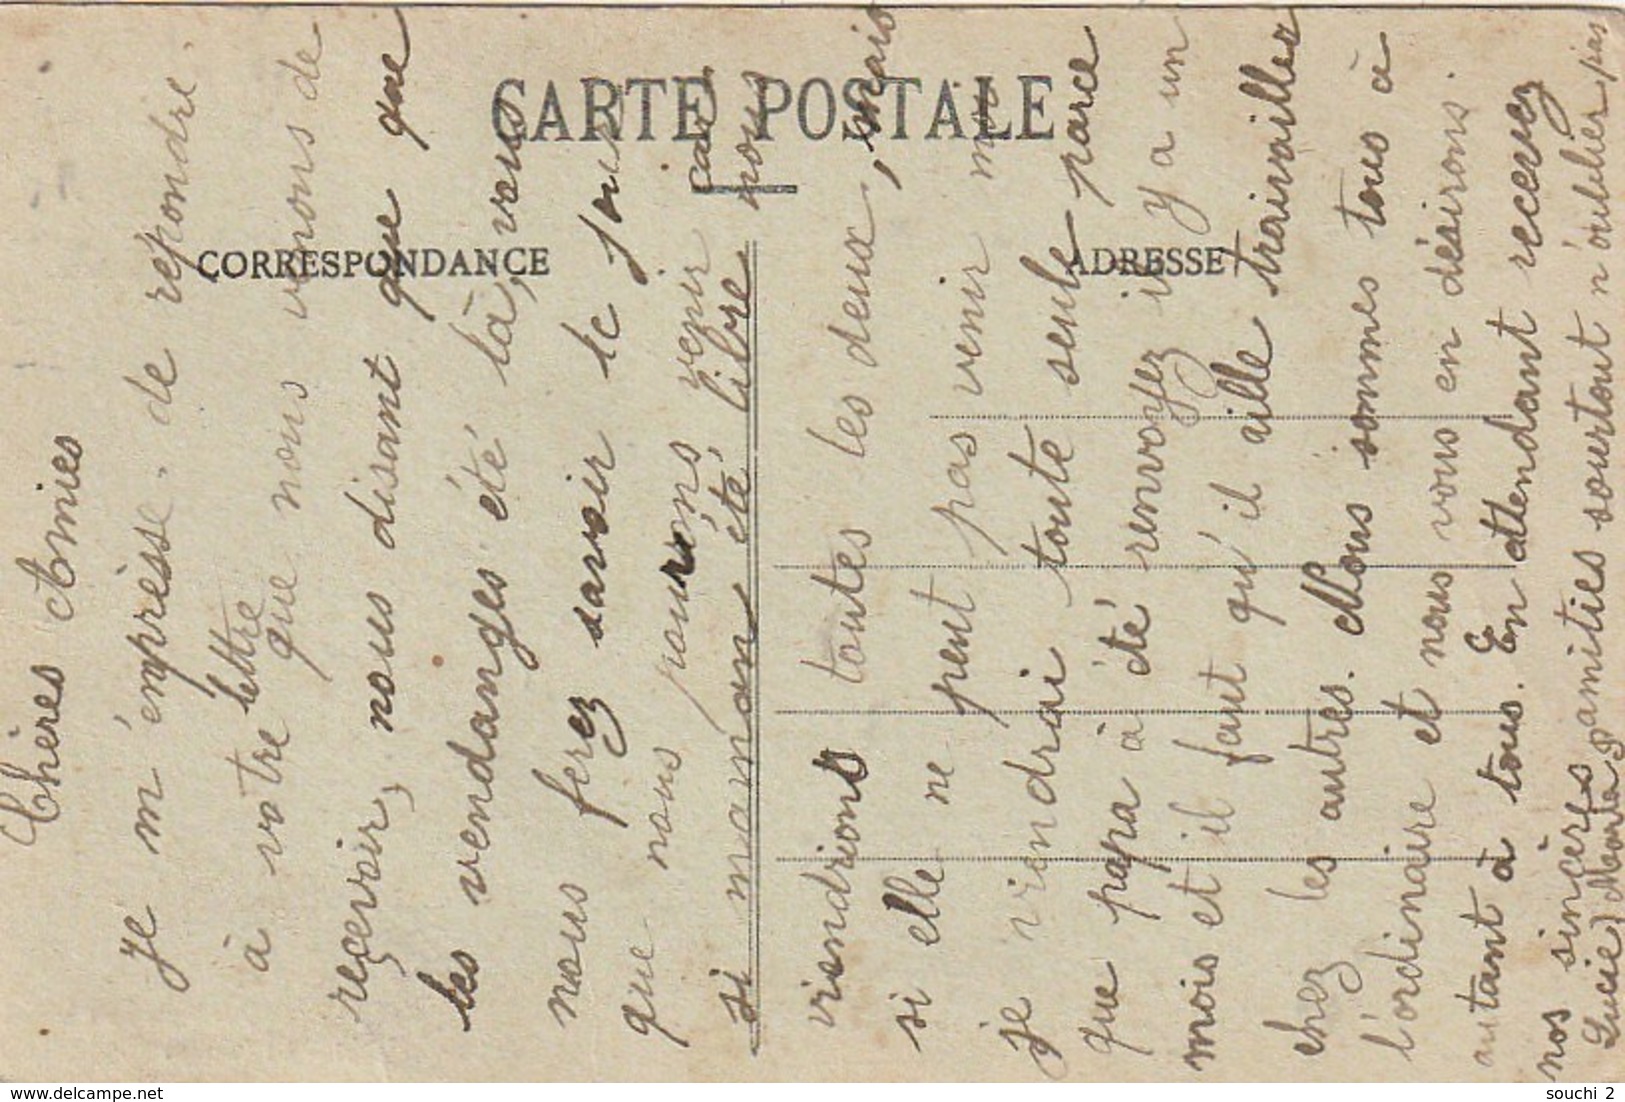 CARTE POSTALE
CORRESPONDANCE
ADRESSE
Chères Amies
Je m'empresse de répondre.
à votre lettre que nous venons de
reçevoir, nous disant que que
les vendanges été là, vous
nous ferez savoir le jour
que nous pourrons venir car
si maman été libre nous
viendrions toutes les deux, mais
si elle ne peut pas venir moi
je viendrai toute seule parce
que papa à été renvoyez il y a un
mois et il faut qu'il aille travailler
chez les autres. Nous sommes tous à
l'ordinaire et nous vous en désirons.
autant à tous. En attendant recevez
nos sincères amitiés surtout n'oublier pas
Lucie, Marta,
www.delcampe.net
souchi 2